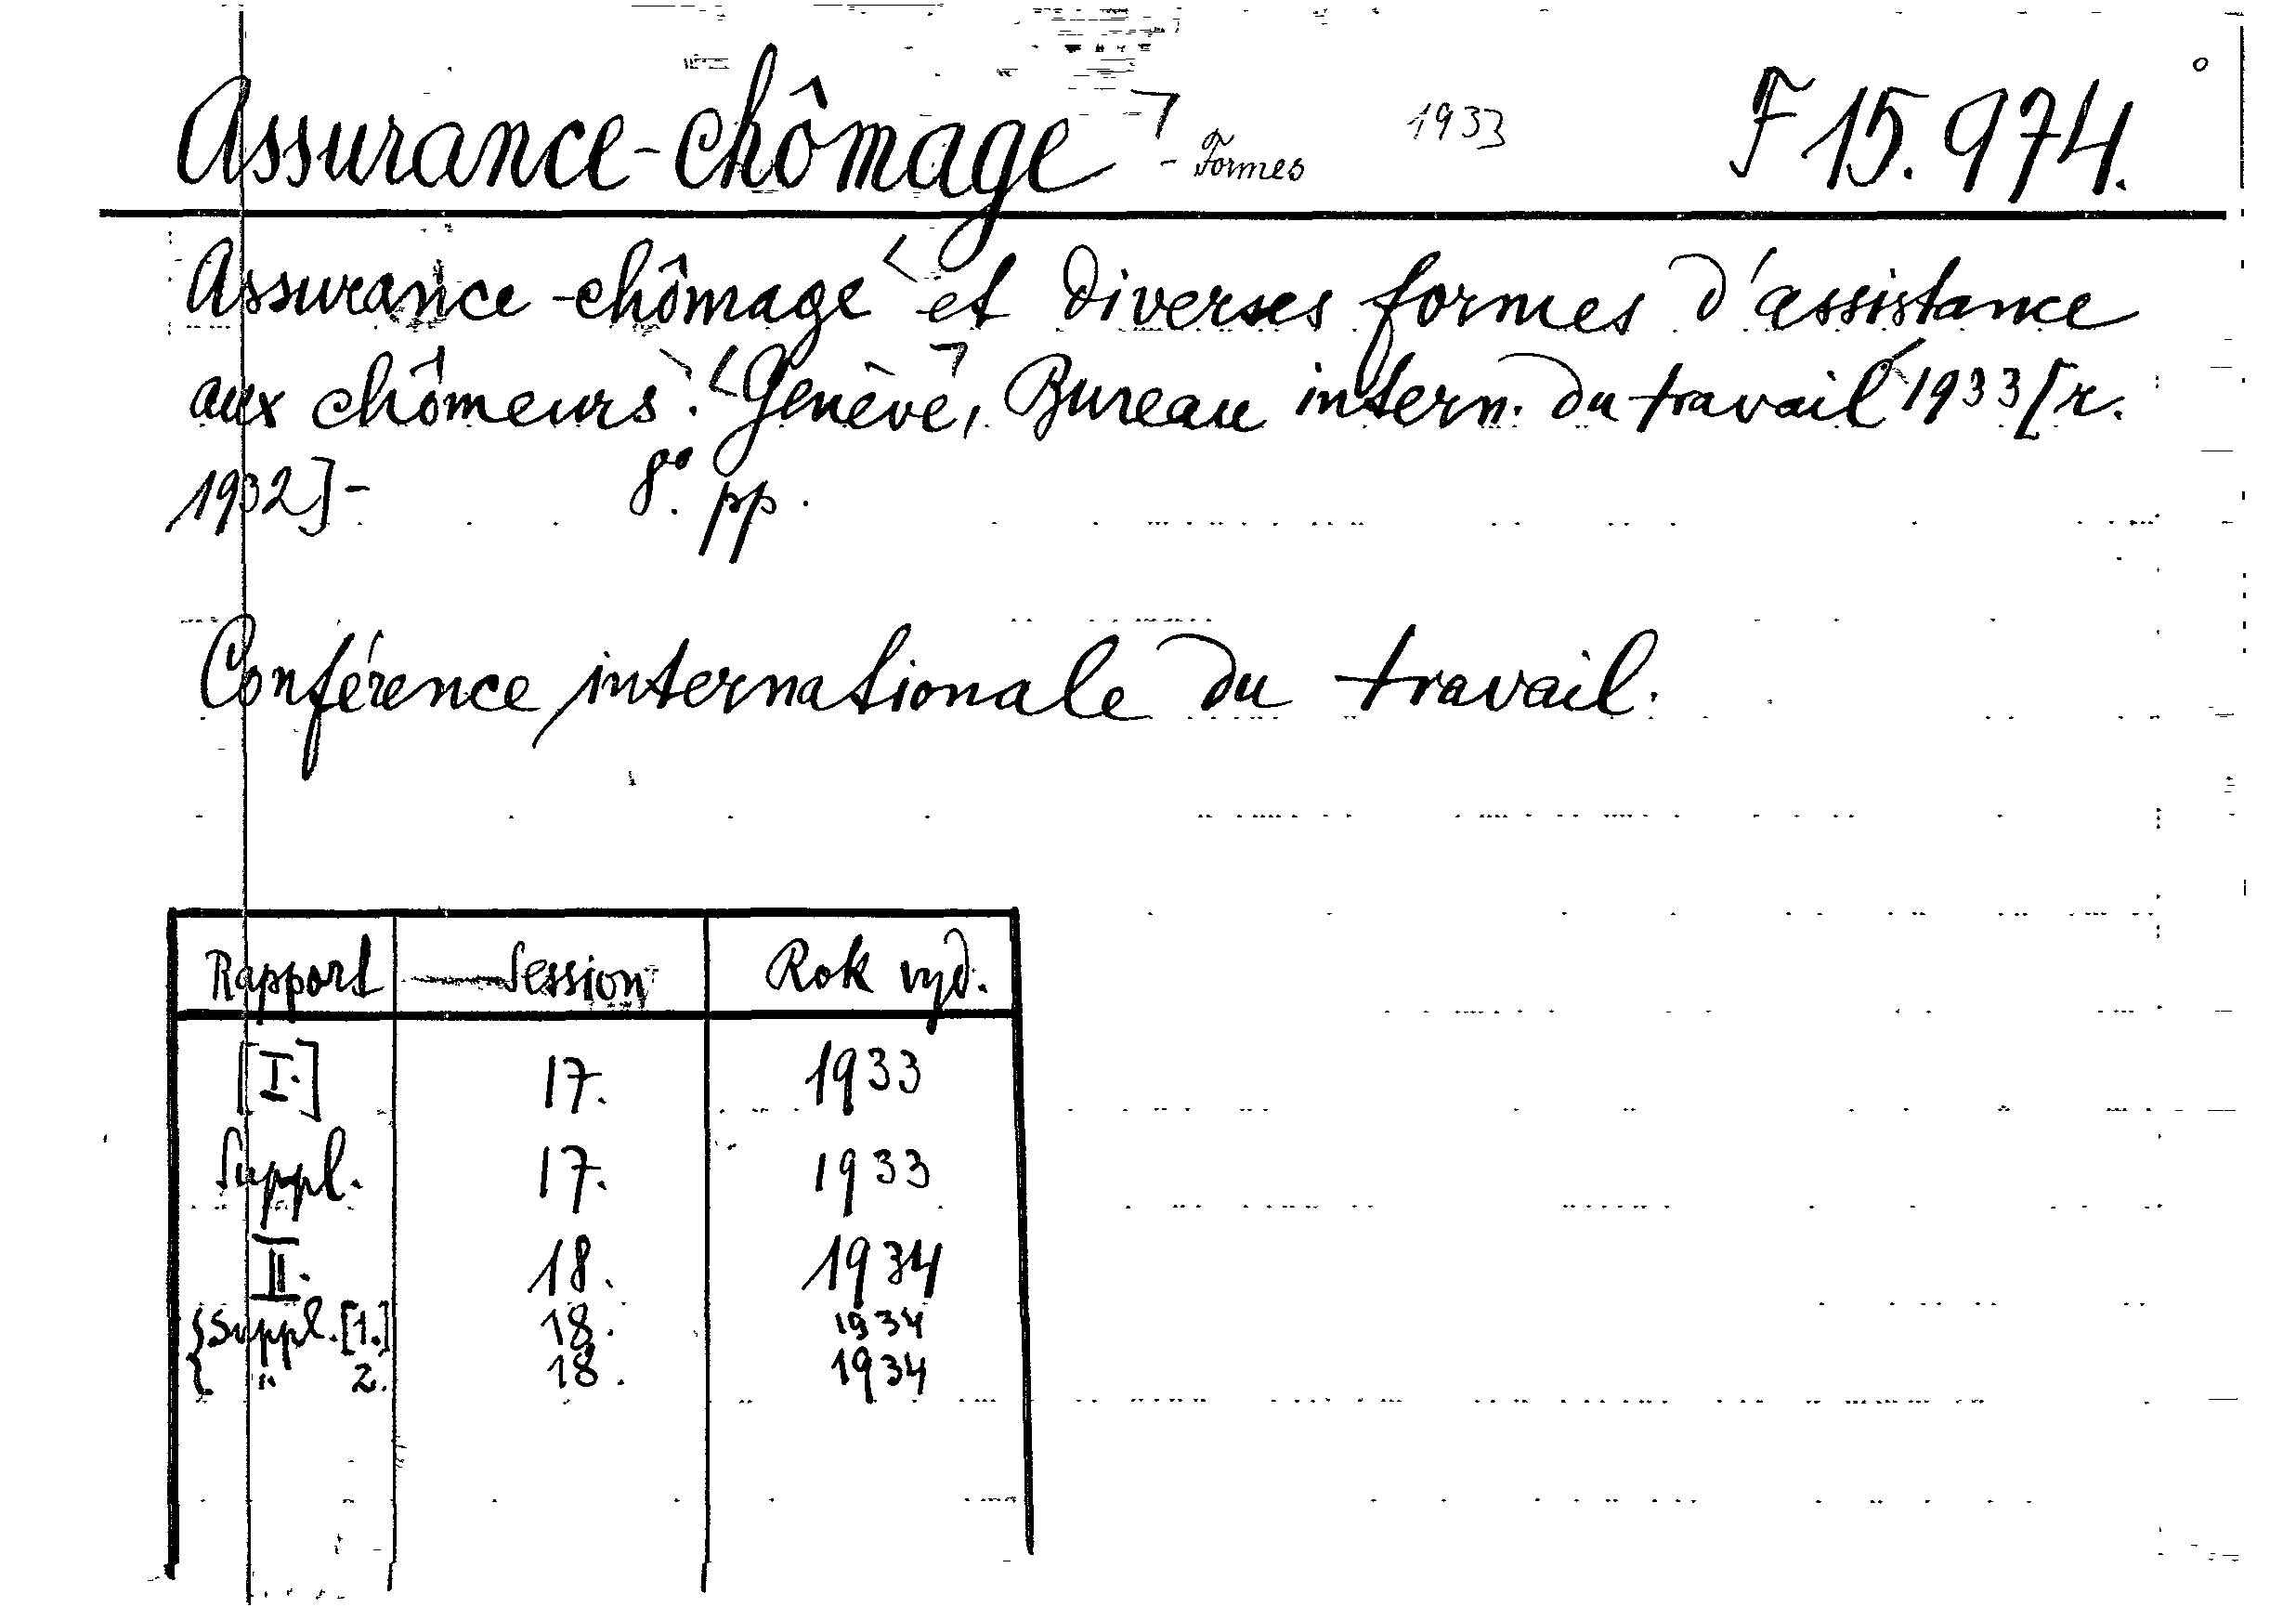 Assurance-chômage - Formes 1933 F 15.974.
Assurance-chômage et diverses formes d'assistance
aux chômeurs. Genève, Bureau intern. du travail 1933 [r.
1932]- 8°. pp.
Conférence internationale du travail.
Rapport Session Rok vyd.
[I.] 17. 1933
Suppl. 17. 1933
II. 18. 1934
{Suppl. [1.] 18. 1934
{ " 2. 18. 1934